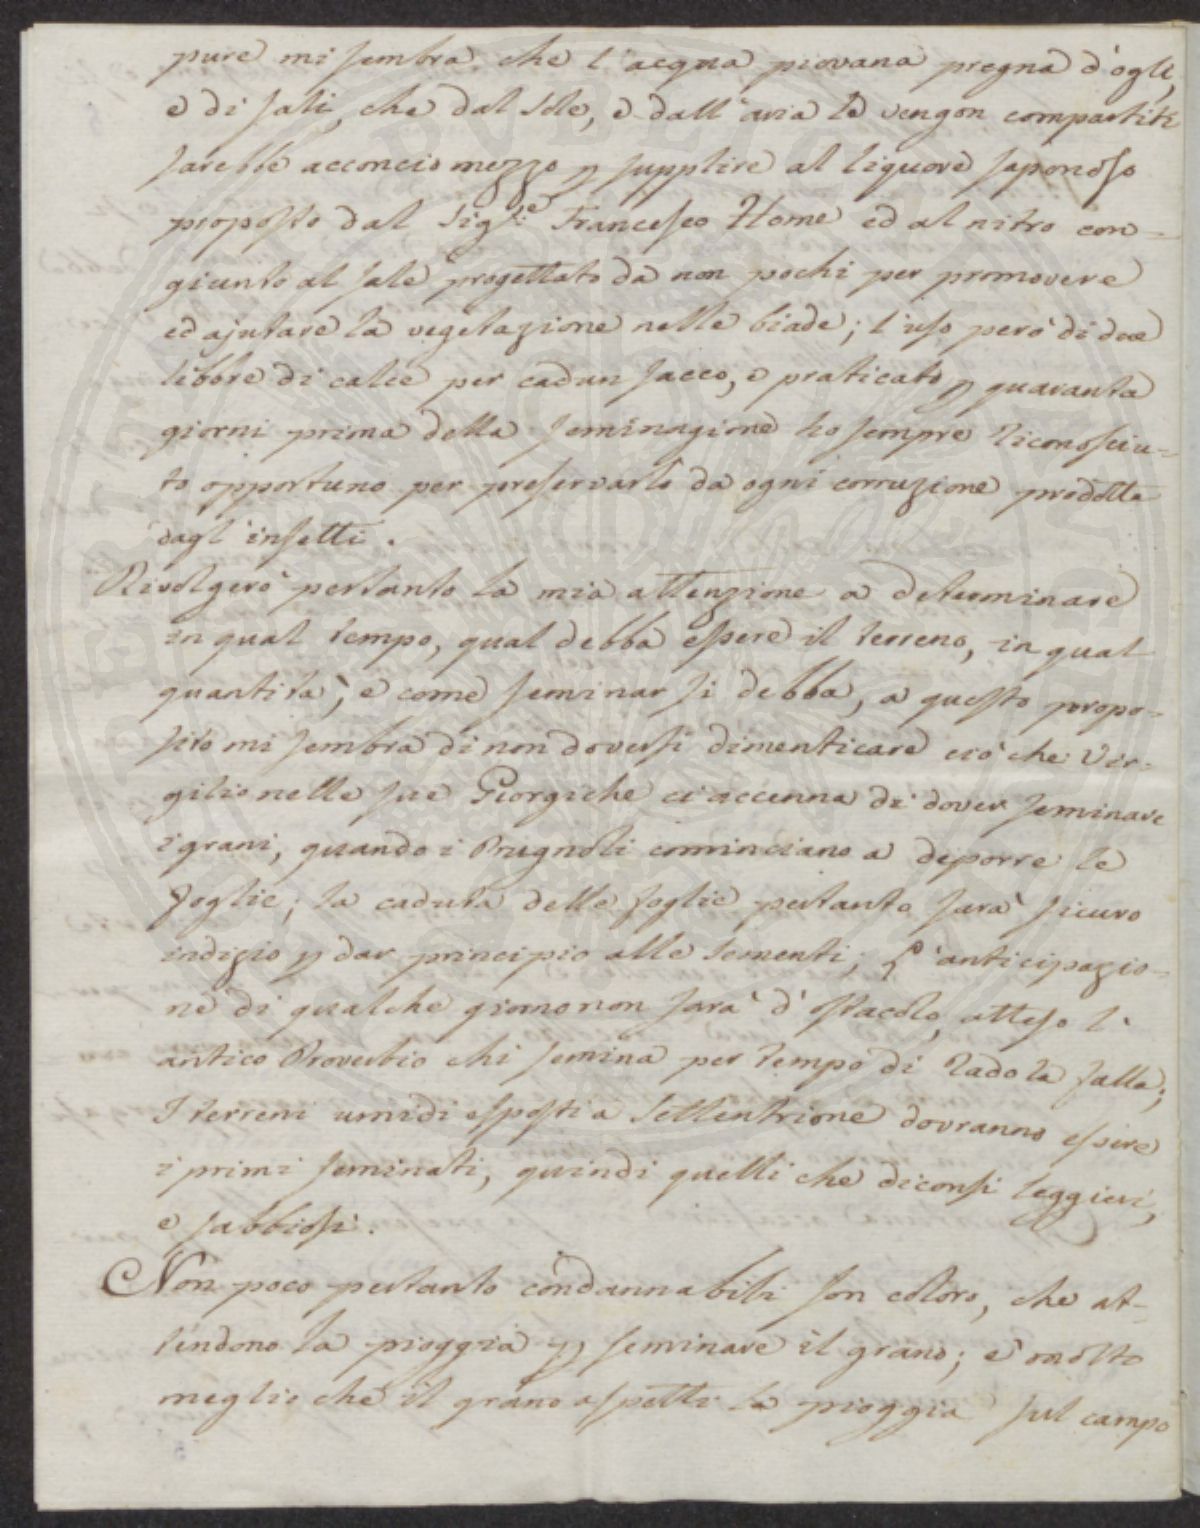 pure mi sembra, che l'acqua piovana pregna d'oglj,
e di sali, che dal Sole, e dall'aria le vengon compartiti
sarebbe acconcio mezzo p supplire al liquore saponoso
proposto dal Sig.re Francesco Home ed al nitro con=
giunto al sale progettato da non pochi per promovere
ed ajutare la vegetazione nelle biade; l'uso però di due
libbre di calce per cadun sacco, e praticato p quaranta
giorni prima della seminagione ho sempre riconosciu=
to opportuno per preservarlo da ogni corruzione prodotta
dagl'insetti.
Rivolgerò pertanto la mia attenzione a determinare
in qual tempo, qual debba essere il terreno, in qual
quantità, e come seminar si debba, a questo propo=
sito mi sembra di non doversi dimenticare ciò che Vir=
gilio nelle sue Giorgiche ci accenna di dover seminare
i grani, quando i Prugnoli cominciano a deporre le
foglie; la caduta delle foglie pertanto sarà sicuro
indizio p dar principio alle sementi; L'anticipazio=
ne di qualche giorno non sarà d'ostacolo, atteso l'
antico Proverbio chi semina per tempo di rado la falla;
I terreni umidi esposti a Settentrione dovranno essere
i primi seminati, quindi quelli che diconsi leggieri,
e sabbiosi.
Non poco pertanto condannabili son coloro, che at=
tendono la pioggia p seminare il grano; è molto
meglio che il grano aspetti la pioggia sul campo